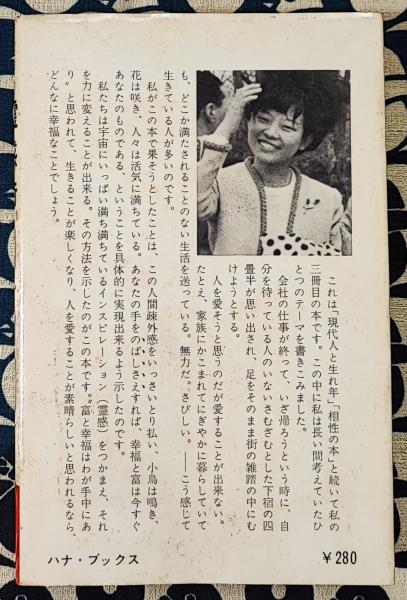 これは「現代人と生れ年」「相性の本」と続いて私の
三冊目の本です。この中に私は長い間考えていたひ
とつのテーマを書きこみました。
会社の仕事が終って、いざ帰ろうという時に、自
分を待っている人のいないさむざむとした下宿の四
畳半が思い出され、足をそのまま街の雑踏の中にむ
けようとする。
人を愛そうと思うのだが愛することが出来ない。
たとえ、家族にかこまれてにぎやかに暮らしていて
も、どこか満たされることのない生活を送っている。無力だ。さびしい。――こう感じて
生きている人が多いのです。
私がこの本で果そうとしたことは、この人間疎外感をいっさいとり払い、小鳥は鳴き、
花は咲き、人々は活気に満ちている。あなたの手をのばしさえすれば、幸福と富は今すぐ
あなたのものである、ということを具体的に実現出来るよう示したのです。
私たちは宇宙にいっぱい満ち満ちているインスピレーション(霊感)をつかまえ、それ
を力に変えることが出来る。その方法を示したのがこの本です。〝富と幸福はわが手中にあ
り〟と思われて、生きることが楽しくなり、人を愛することが素晴らしいと思われるなら、
どんなに幸福なことでしょう。
ハナ・ブックス
¥280